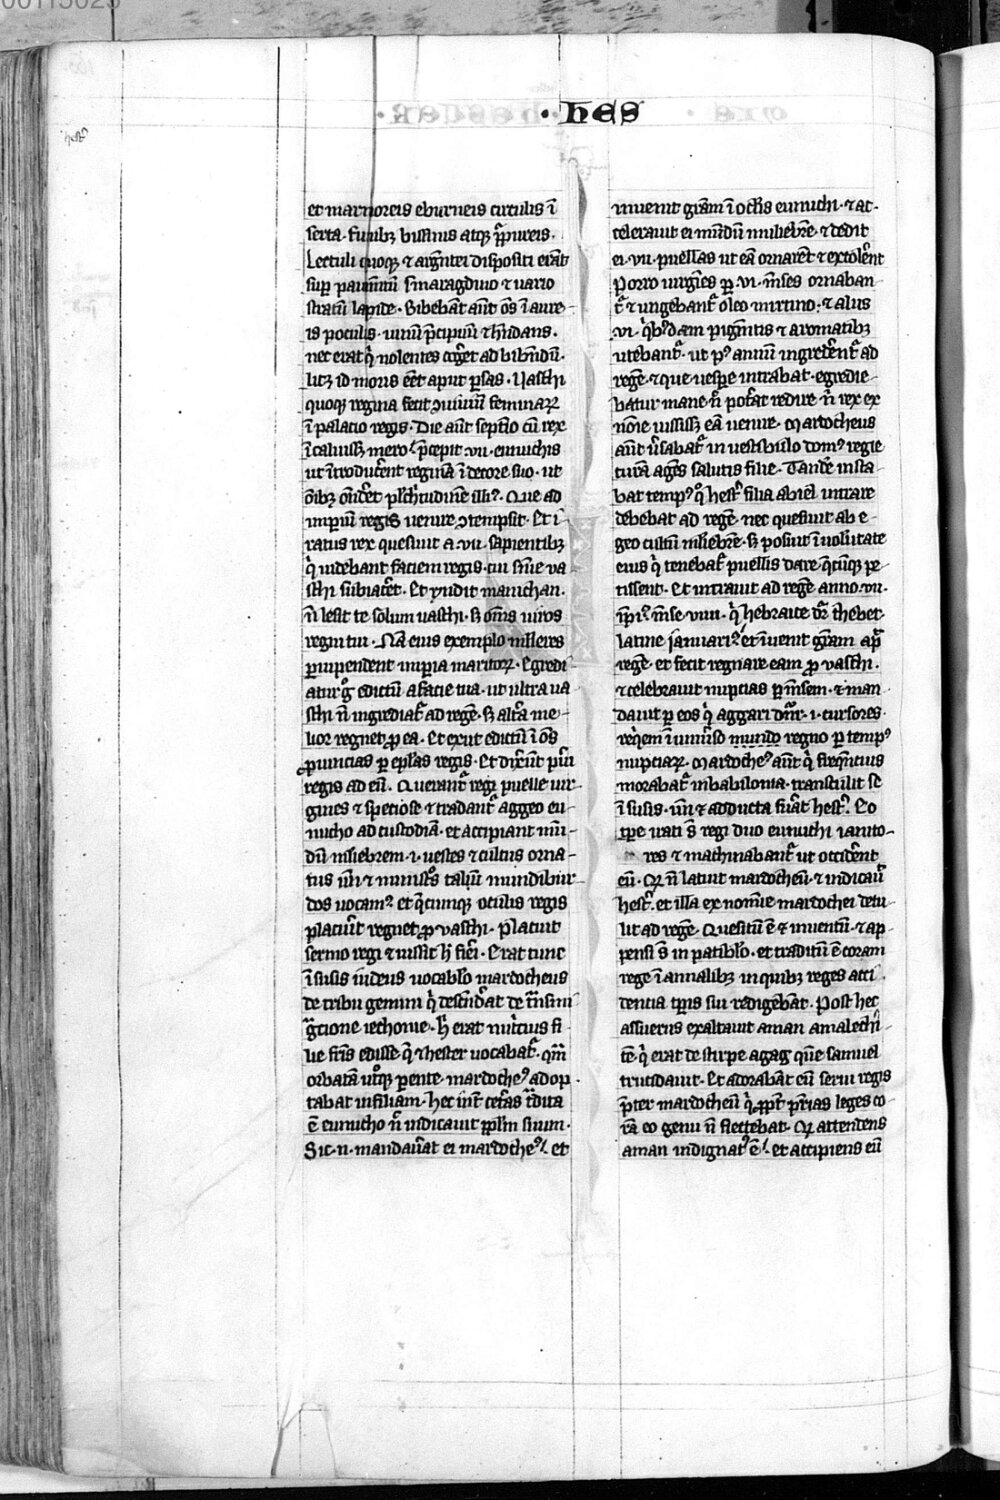 00113023
· hES
et marmoreis eburneis circulis ī
serta. funibꝫ bissinis atqꝫ p̄pureis.
Lectuli quoqꝫ ⁊ argentei dispositi erāt
suꝑ pauimētū smaragdino ⁊ uario
stratū lapide. Bibebāt aūt oēs ī aure-
is poculis. uinū p̄cipuū ⁊ habūdans.
nec erat qͥ nolentes cogēt ad bibendū.
licꝫ id moris eēt aput ꝑsas. Uasthi
quoqꝫ regina fecit ꝯuiuiū feminarꝝ
ī palacio regis. Die aūt septīo cū rex
īcaluissꝫ mero. p̄cepit .vii. eunuchis
ut ītroducerent reginā ī decore suo. ut
oībꝫ oñderet pulchritudinē illiꝰ. Que ad
imperiū regis uenire ꝯtempsit. Et i-
ratus rex quesiuit a .vii. sapientibꝫ
qͥ uidebant faciem regis. cui sñie va
sthi subiacēt. Et rñdit manuchan.
ñ lesit te solum uasthi. sꝫ omēs uiros
regni tui. Nā eius exemplo mulieres
ꝑuipendent imperia maritorꝝ. Egredi
atur gͦ edictū a facie tua. ut ultra va
sthi ñ ingrediatᷣ ad regē. sꝫ altera me-
lior regnet ꝓ ea. Et exiit edictū ī oēs
ꝓuincias ꝑ eplas regis. Et dixerūt pueri
regis ad eū. Querantᷣ regi puelle uir-
gines ⁊ speciose ⁊ tradantᷣ aggeo eu-
nucho ad custodiā. et accipiant mū-
dū muliebrem .i. uestes ⁊ cultus orna-
tus
dos uocamꝰ et qͨcumqꝫ oculis regis
placuerit regnet ꝓ vasthi. Placuit
sermo regi ⁊ iussit h̄ fieri. Erat tunc
ī susis iudeus uocabulo mardocheus
de tribu gemini qͥ descēderat de trāsmi
gͣcione iechonie. h̄ erat nutricius fi-
lie fr̄is edisse q̄ ⁊ hester uocabatᷣ. quā
orbatā utͦqꝫ parente. mardocheꝰ adop-
tabat in filiam. hec inter ceteras t̄dita
ē eunucho ñ indicauit pplm suum.
Sic .n. mandauerat ei mardocheꝰ. et
inuenit grām ī oculis eunuchi. ⁊ ac-
celerauit ei mūdū muliebrē. ⁊ dedit
ei .vii. puellas ut eā ornarēt ⁊ excolerent
Porro uirgines ꝑ .vi. menses ornaban
tᷣ ⁊ ungebantᷣ oleo mirtino. ⁊ aliis
.vi. qͥbꝰdam pigmētis ⁊ aromatibꝫ
utebantᷣ. ut pꝰ annū ingrederentᷣ ad
regē. ⁊ que uespe intrabat. egredie-
batur mane. ñ poterat redire ñ rex ex
noīe iussissꝫ eā uenire. Mardocheus
aūt uersabatᷣ in uestibulo domꝰ regie
curā agēs salutis filie. Tandē insta-
bat tempꝰ qͦ hester filia abiel intrare
debebat ad regē. nec quesiuit ab e-
geo cultū muliebrē. sꝫ posuit ī uolūtate
eius qͥ tenebatᷣ puellis dare qͨcūqꝫ pe-
tissent. Et intrauit ad regē anno .vii.
īperiꝰ mēse .viiii. qͥ hebraice dr̄ thebet.
latine ianuariꝰ. et īuenit grām apud
regē. et fecit regnare eam ꝓ vasthi.
⁊ celebrauit nupcias ꝑ mensem. ⁊ man
dauit ꝑ eos qͥ aggari dn̄r .i. cursores
reqͥem ī uniuerso mundo regno ꝑ tempꝰ
nupciarꝝ. Mardocheꝰ aūt qͥ frequencius
morabatᷣ in babilonia. transtulit se
ī susis. ubi ⁊ adducta fuerat hesterᷣ. Eo
tꝑe irati s̄ regi duo eunuchi ianito-
res ⁊ machinabantᷣ ut occiderent
eū. Qꝫ ñ latuit mardocheū. ⁊ indicauit
hesterᷣ. et illa ex nomine mardochei detu-
lit ad regē. Quesitū ē ⁊ inuentū. ⁊ ap-
pensi s̄ in patibulo. et traditū ē coram
rege ī annalibꝫ in quibꝫ reges acci-
dencia tꝑis sui redigebāt. Post hec
assuerus exaltauit aman amalechi-
tē. qͥ erat de stirpe agag quē samuel
trucidauit. Et adorabāt eū serui regis
p̄ter mardocheū qͥ ꝓpt p̄rias leges co-
rā eo genu ñ flectebat. Qꝫ attendens
aman indignatꝰ ē. et accipiens eū